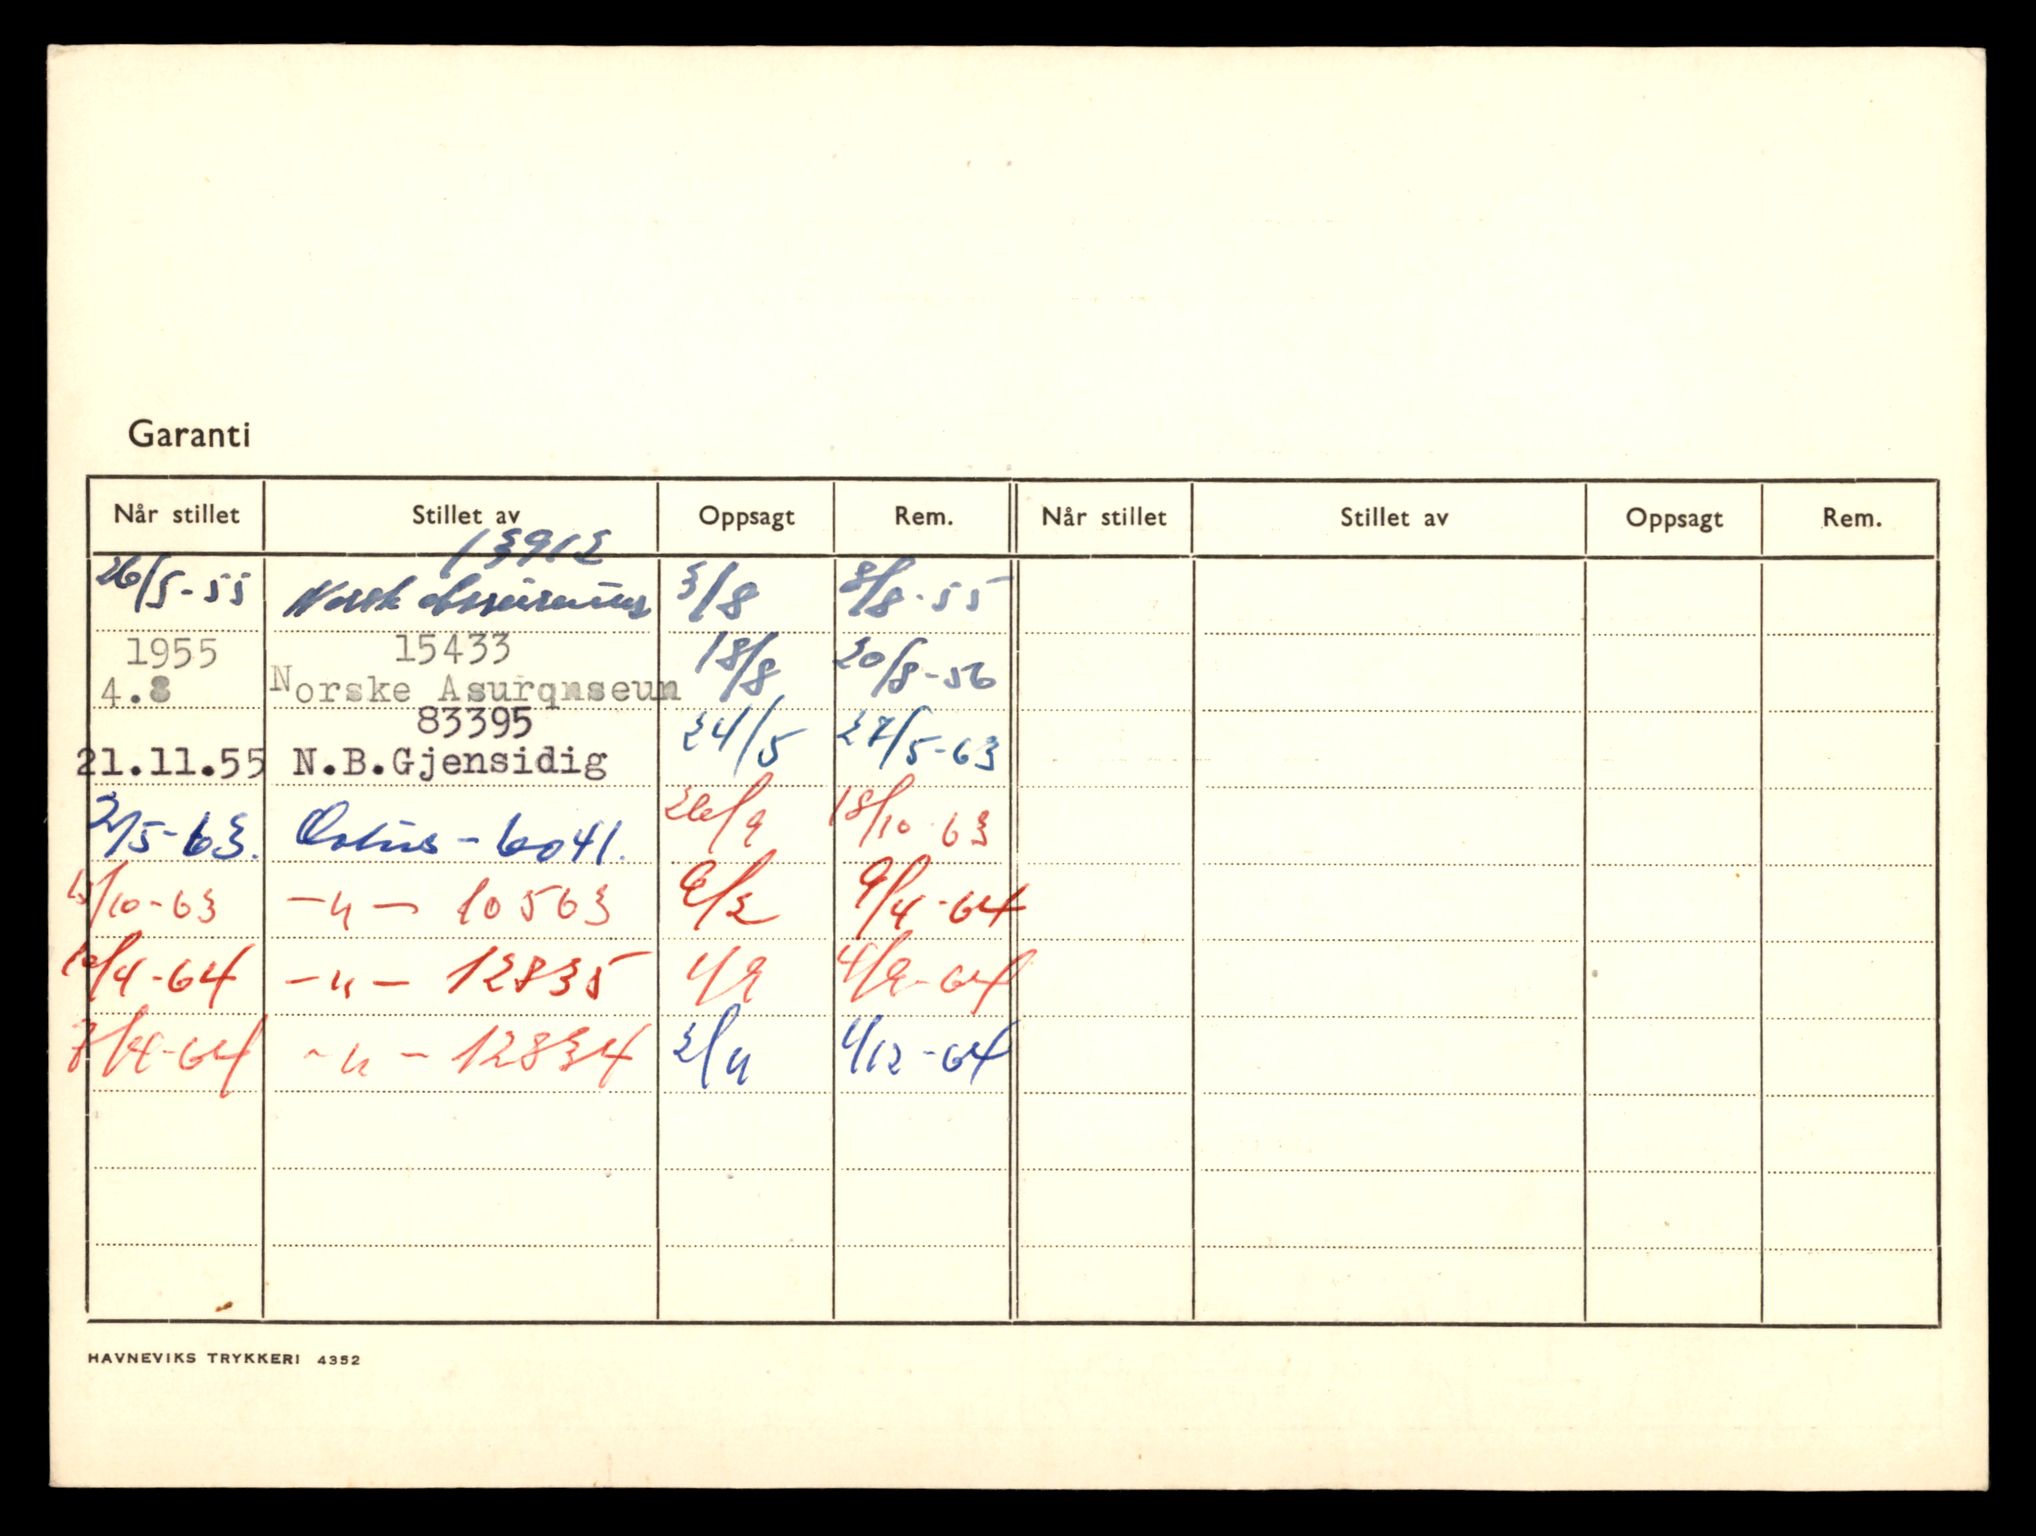 Garanti
Når stillet Stillet av Oppsagt Rem. Når stillet Stillet av Oppsagt Rem.
13912
26/5-55 Norsk 3/8 8/8-55
1955 15433 18/8 20/8-56
4.8 Norske Asurqnseun
83395 24/5 27/5-63
21.11.55 N.B.Gjensidig
2/5-63. - 6041. 26/9 18/10-63
15/10-63 -"- 10563 /2 9/4-64
10/4-64 -"- 12835 4/9 4/9-64
-64 -"- 12834 2/4 4/12-64
HAVNEVIKS TRYKKERI 4352